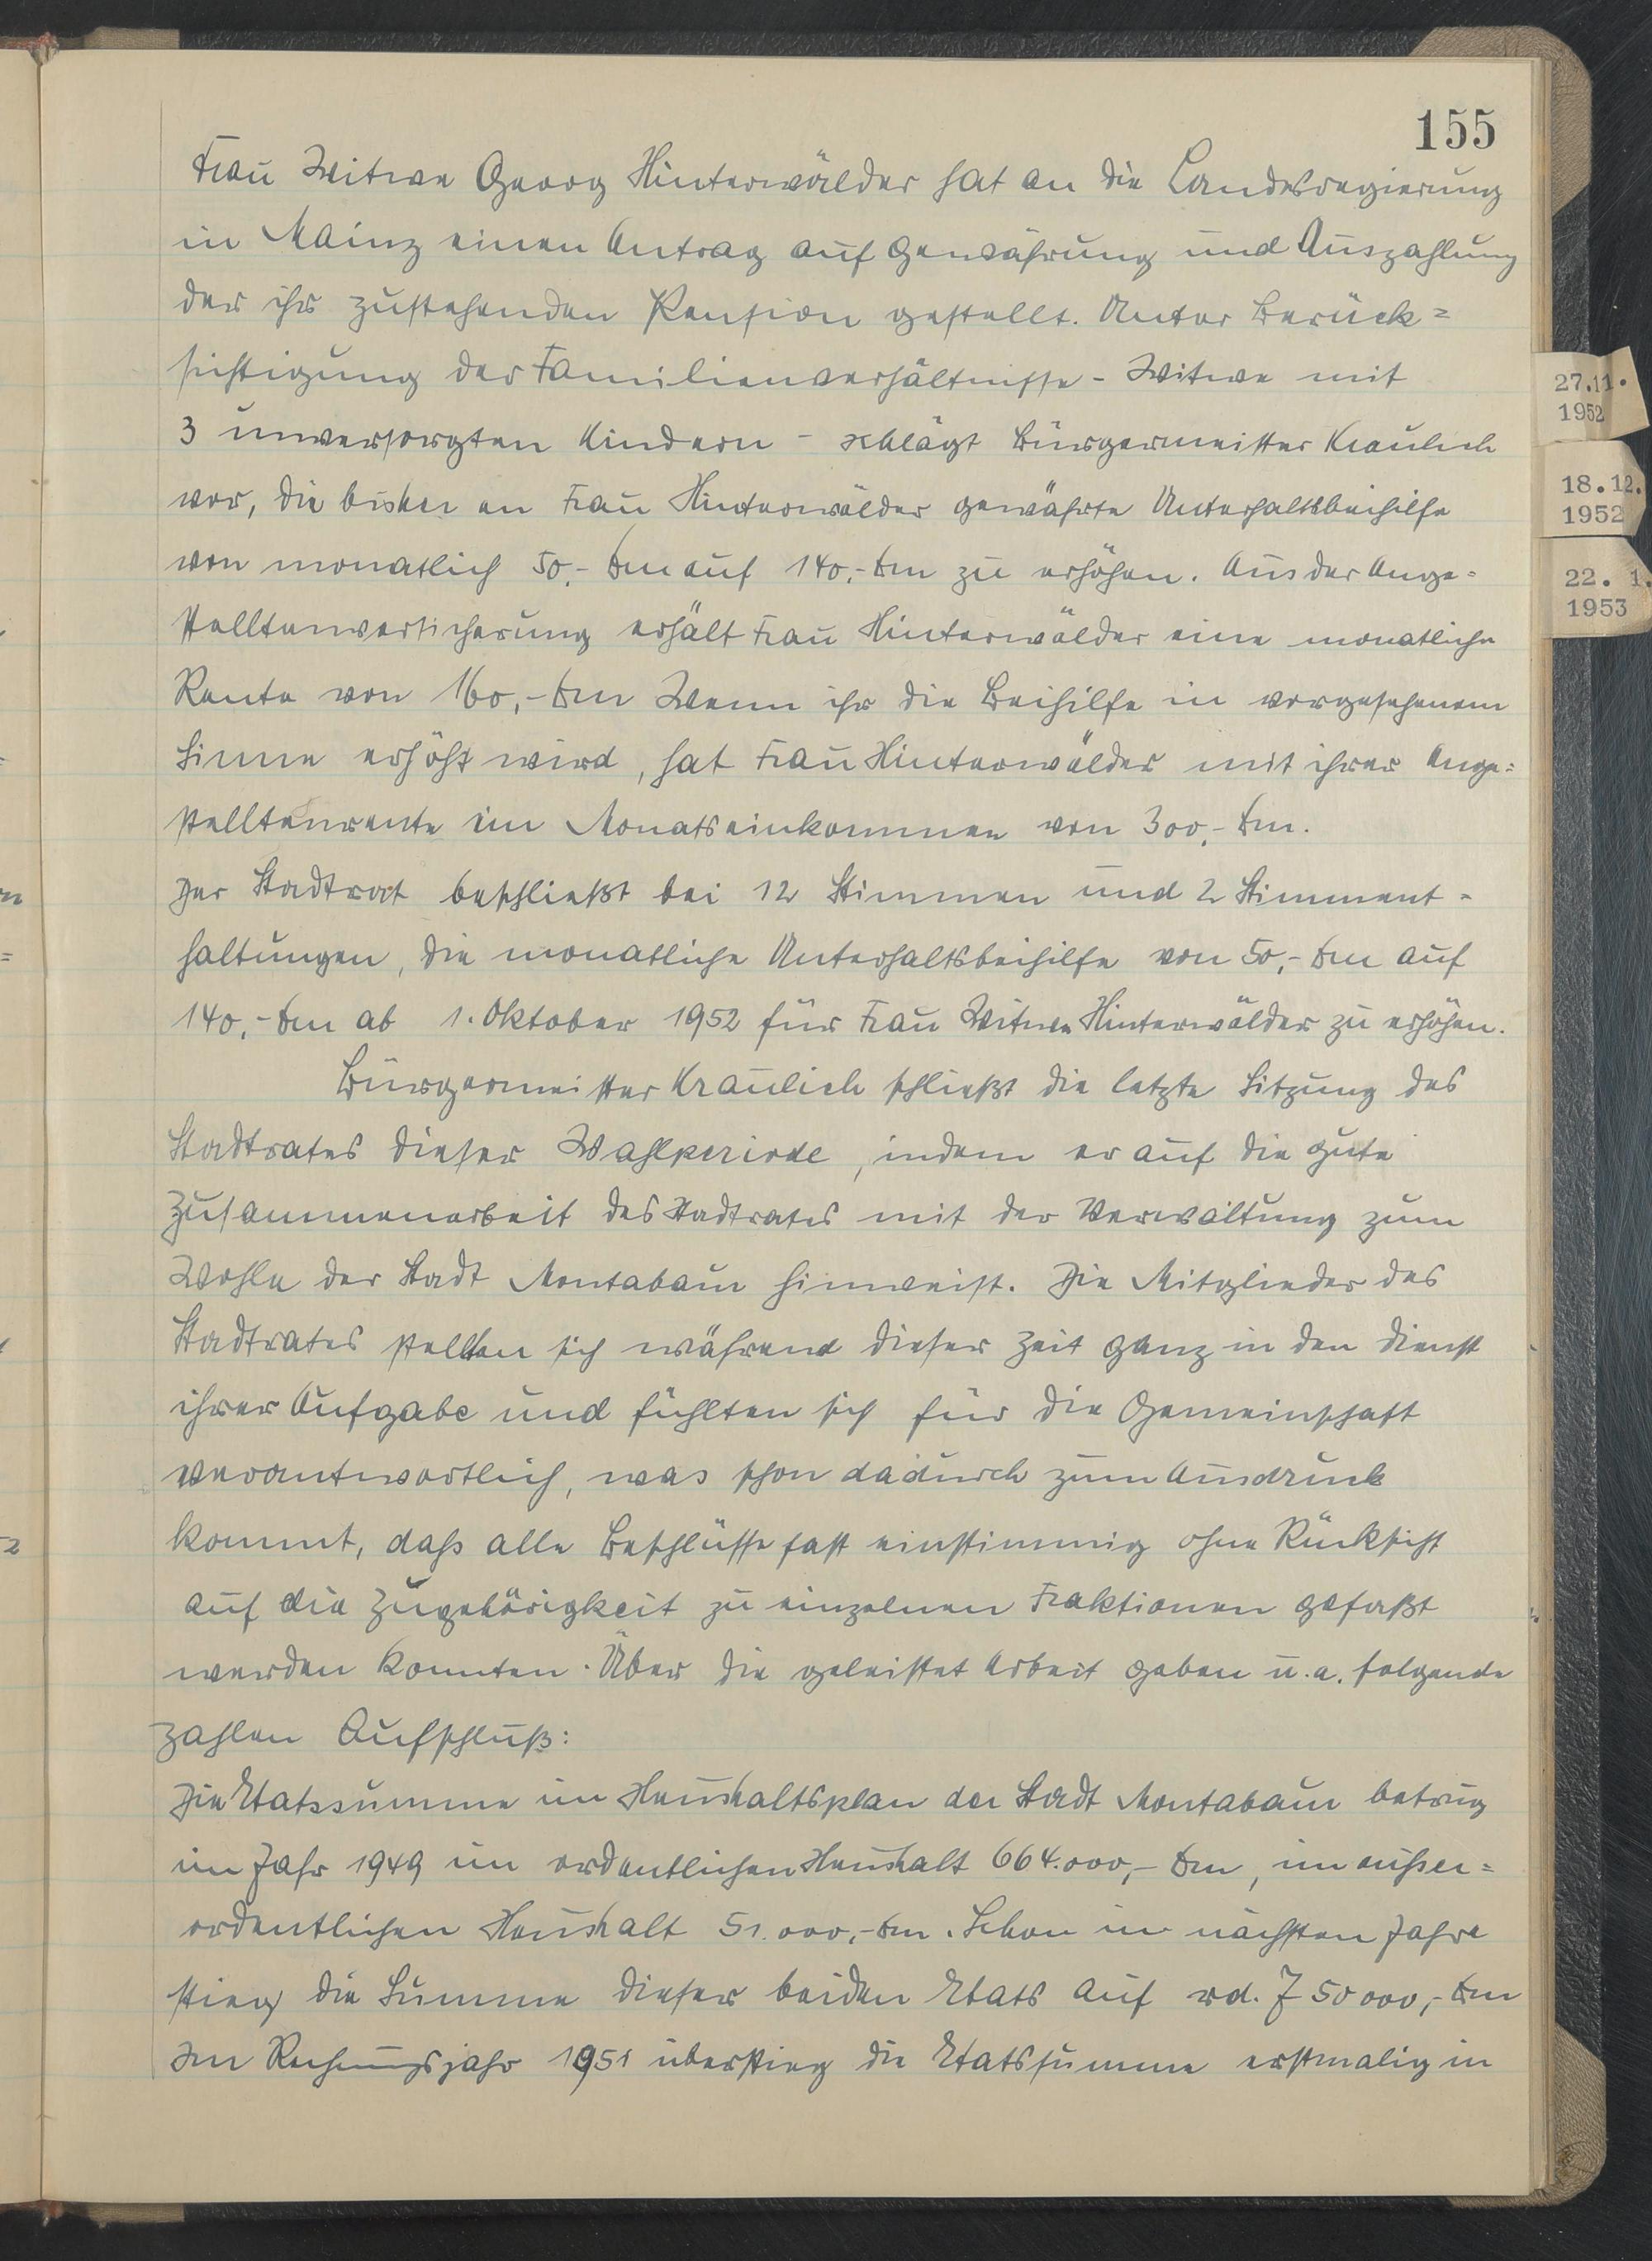 155
Frau Witwe Georg Hinterwälder hat an die Landesregierung
in Mainz einen Antrag auf Gewährung und Auszahlung
der ihr zustehenden Pension gestellt. Unter Berück=
sichtigung der Familienverhältnisse - Witwe mit
3 unversorgten Kindern - schlägt Bürgermeister Kraulich
vor, die bisher an Frau Hinterwälder gewährte Unterhaltsbeihilfe
von monatlich 50,- Dm auf 140,- Dm zu erhöhen. Aus der Ange=
stelltenversicherung erhält Frau Hinterwälder eine monatliche
Rente von 160,- Dm Wenn ihr die Beihilfe in vorgesehenem
Sinne erhöht wird, hat Frau Hinterwälder mit ihrer Ange=
stelltenrente ein Monatseinkommen von 300,- Dm.
Der Stadtrat beschließt bei 12 Stimmen und 2 Stimment=
haltungen, die monatliche Unterhaltsbeihilfe von 50,- Dm auf
140,- Dm ab 1. Oktober 1952 für Frau Witwe Hinterwälder zu erhöhen.
Bürgermeister Kraulich schließt die letzte Sitzung des
Stadtrates dieser Wahlperiode, indem er auf die gute
Zusammenarbeit des Stadtrates mit der Verwaltung zum
Wohle der Stadt Montabaur hinweist. Die Mitglieder des
Stadtrates stellten sich während dieser Zeit ganz in den Dienst
ihrer Aufgabe und fühlten sich für die Gemeinschaft
verantwortlich, was schon dadurch zum Ausdruck
kommt, dass alle Beschlüsse fast einstimmig ohne Rücksicht
auf die Zugehörigkeit zu einzelnen Fraktionen gefaßt
werden konnten. Über die geleistet Arbeit geben u. a. folgende
Zahlen Aufschluß:
Die Etatssumme im Haushaltsplan der Stadt Montabaur betrug
im Jahr 1949 im ordentlichen Haushalt 664.000,- Dm, im ausser=
ordentlichen Haushalt 51.000,- Dm. Schon im nächsten Jahre
stieg die Summe dieser beiden Etats auf rd. 750 000,- Dm
Im Rechnungsjahr 1951 überstieg die Etatssumme erstmalig in
27.11.
1952
18.12.
1952
22. 1.
1953